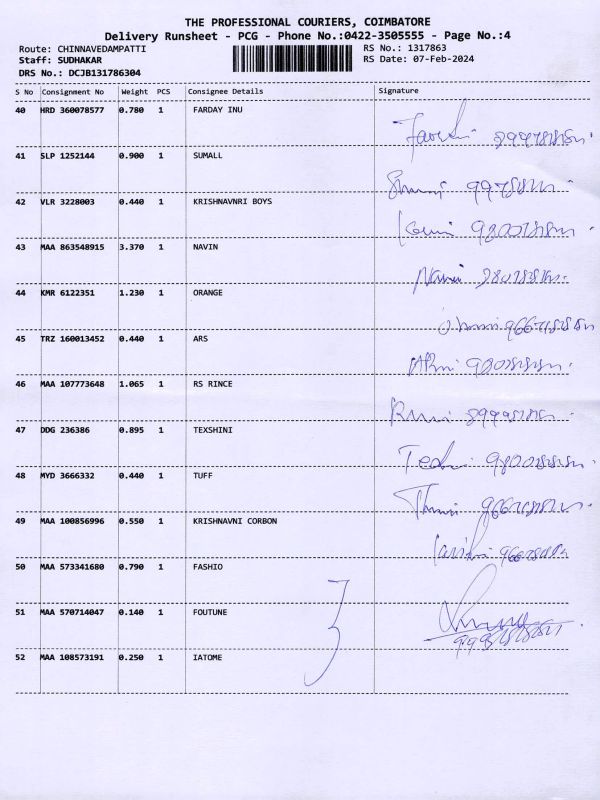 THE PROFESSIONAL COURIERS, COIMBATORE
Delivery Runsheet - PCG - Phone No.:0422-3505555 - Page No.:4
Route: CHINNAVEDAMPATTI RS No.: 1317863
Staff: SUDHAKAR RS Date: 07-Feb-2024
DRS No.: DCJB131786304
S No Consignment No Weight PCS Consignee Details Signature
40 HRD 360078577 0.780 1 FARDAY INU
41 SLP 1252144 0.900 1 SUMALL
42 VLR 3228003 0.440 1 KRISHNAVNRI BOYS
43 MAA 863548915 3.370 1 NAVIN
44 KMR 6122351 1.230 1 ORANGE
45 TRZ 160013452 0.440 1 ARS
46 MAA 107773648 1.065 1 RS RINCE
47 DDG 236386 0.895 1 TEXSHINI
48 MYD 3666332 0.440 1 TUFF
49 MAA 100856996 0.550 1 KRISHNAVNI CORBON
50 MAA 573341680 0.790 1 FASHIO
51 MAA 570714047 0.140 1 FOUTUNE
52 MAA 108573191 0.250 1 IATOME